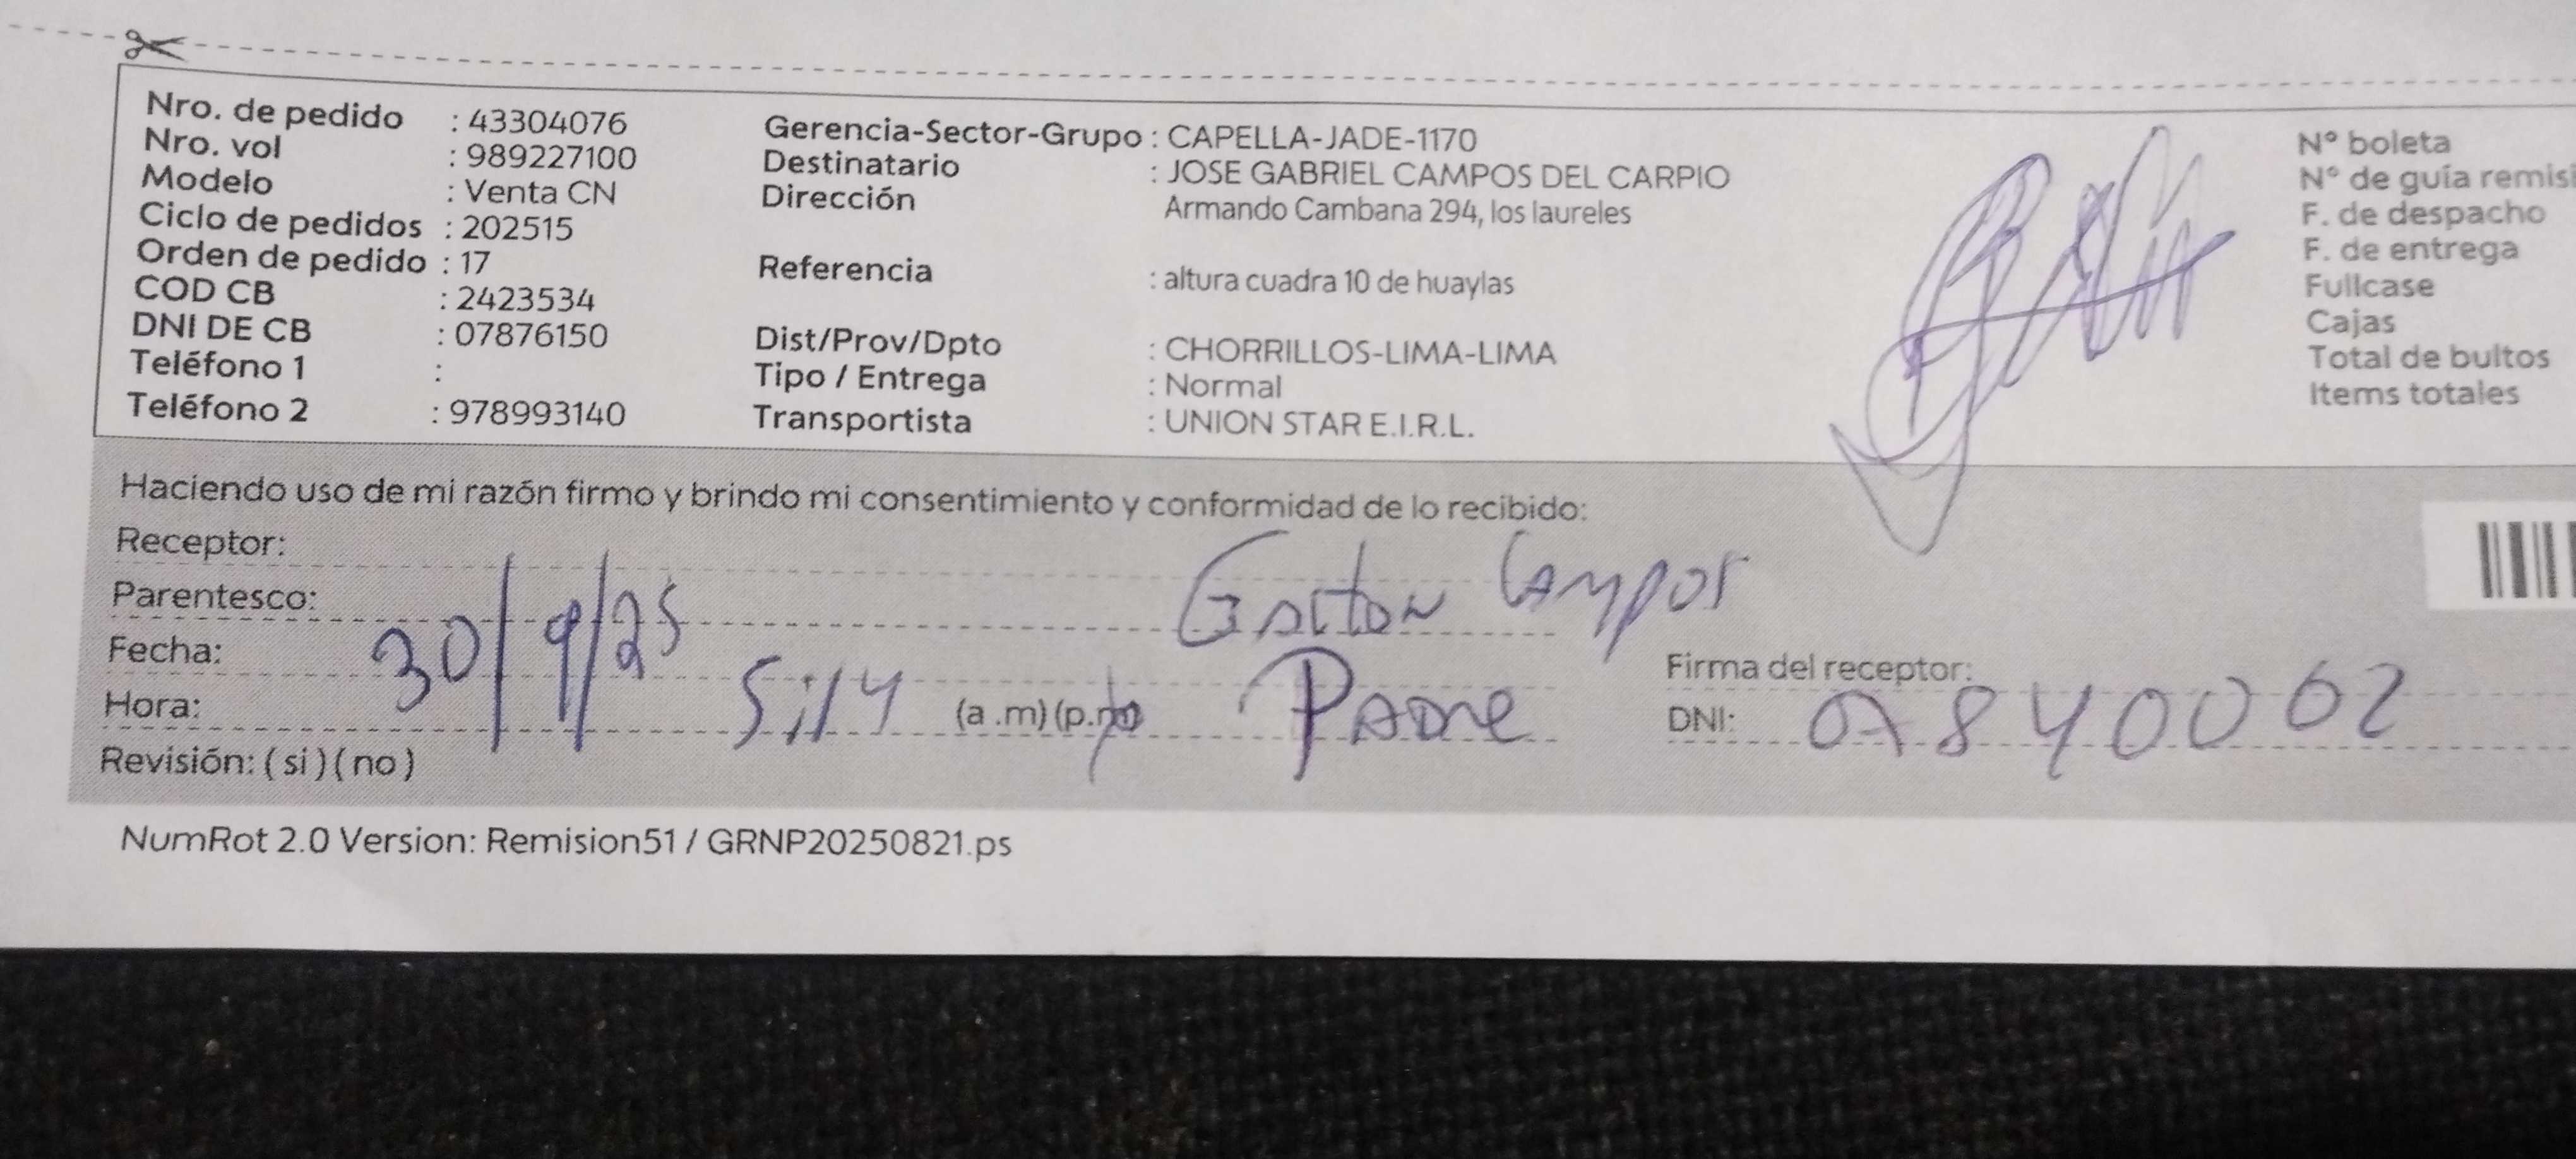 Nro. de pedido : 43304076
Nro. vol : 989227100
Modelo : Venta CN
Ciclo de pedidos : 202515
Orden de pedido : 17
COD CB : 2423534
DNI DE CB : 07876150
Teléfono 1 :
Teléfono 2 : 978993140
Gerencia-Sector-Grupo : CAPELLA-JADE-1170
Destinatario : JOSE GABRIEL CAMPOS DEL CARPIO
Dirección Armando Cambana 294, los laureles
Referencia : altura cuadra 10 de huaylas
Dist/Prov/Dpto : CHORRILLOS-LIMA-LIMA
Tipo / Entrega : Normal
Transportista : UNION STAR E.I.R.L.
Nº boleta
Nº de guía remisi
F. de despacho
F. de entrega
Fullcase
Cajas
Total de bultos
Items totales
Haciendo uso de mi razón firmo y brindo mi consentimiento y conformidad de lo recibido:
Receptor: Gaston Campos
Parentesco: Padre
Fecha: 30/9/25
Hora: 5:14 (a .m) (p.m)
Revisión: ( si ) ( no )
Firma del receptor:
DNI: 07840062
NumRot 2.0 Version: Remision51 / GRNP20250821.ps